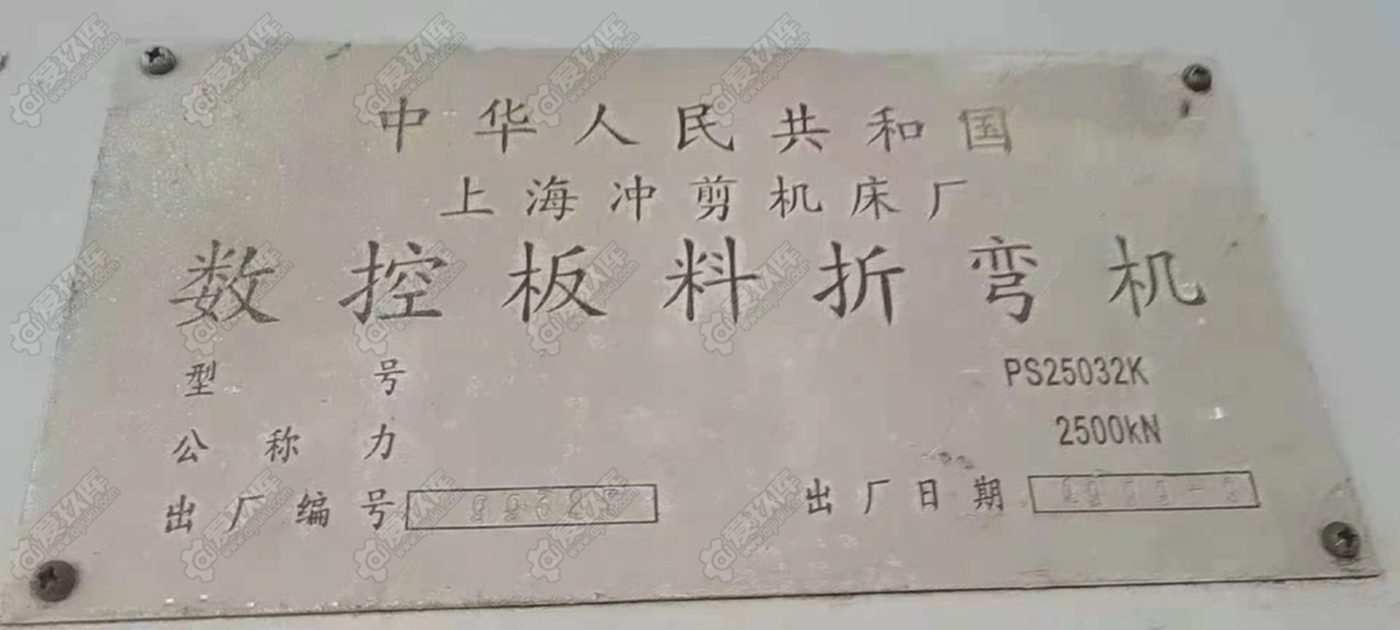 中华人民共和国
上海冲剪机床厂
数控板料折弯机
型号 PS25032K
公称力 2500kN
出厂编号 出厂日期
爱玖库
www.aijiuku.com